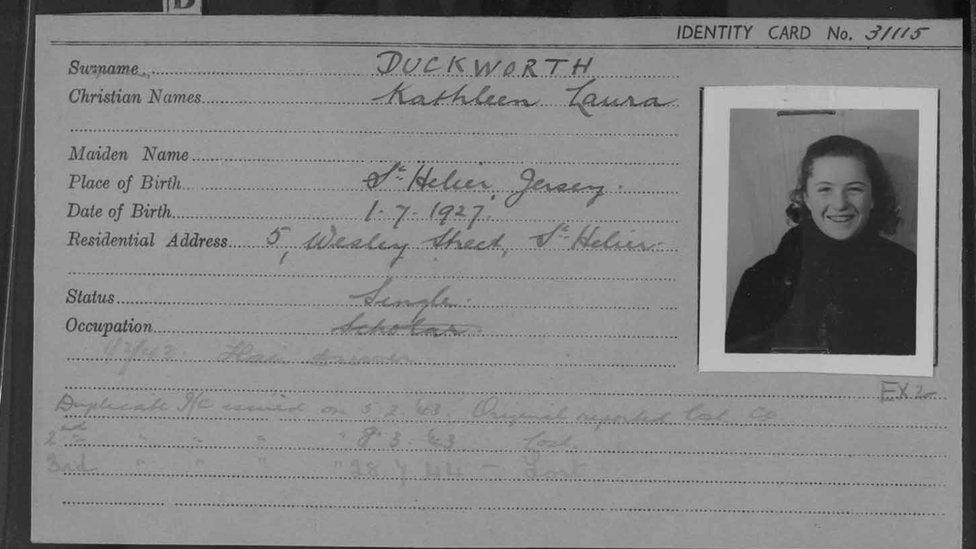 D
IDENTITY CARD No. 31115
Surname DUCKWORTH
Christian Names Kathleen Laura
Maiden Name
Place of Birth St Helier, Jersey.
Date of Birth 1.7.1927.
Residential Address 5, Wesley Street, St Helier.
Status Single.
Occupation Scholar.
Hair dresser
EX 2
Duplicate I/C issued on 5.2.43. Original reported lost.
2nd " " " " 8.3.43 Lost.
3rd " " " " 28.7.44 - Lost